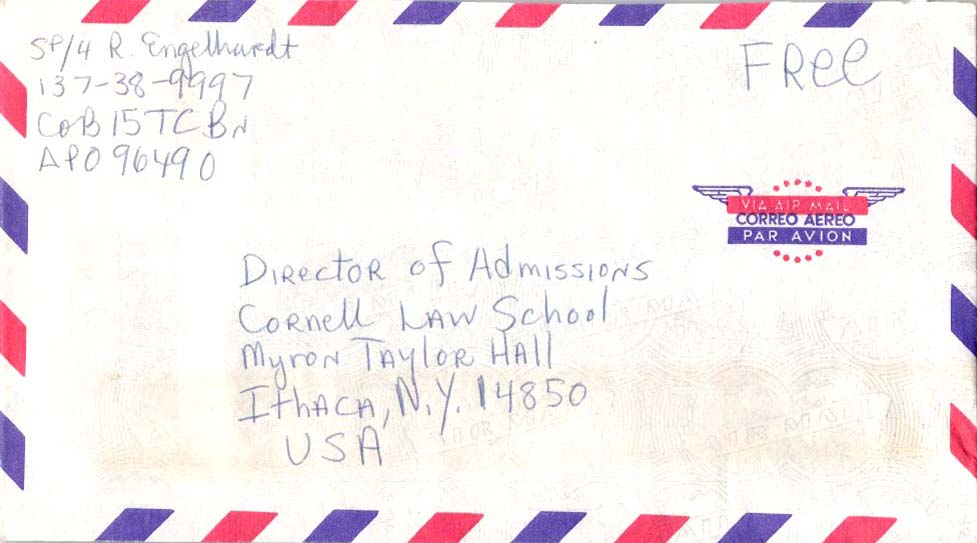 SP/4 R. Engelhardt
137-38-9997
CoB 15 TC BN
APO 96490
FRee
VIA AIR MAIL
CORREO AEREO
PAR AVION
DIRECTOR of AdMISSIONS
CORNell LAW School
MyRON TAYLOR HAll
IthACA, N.Y. 14850
USA